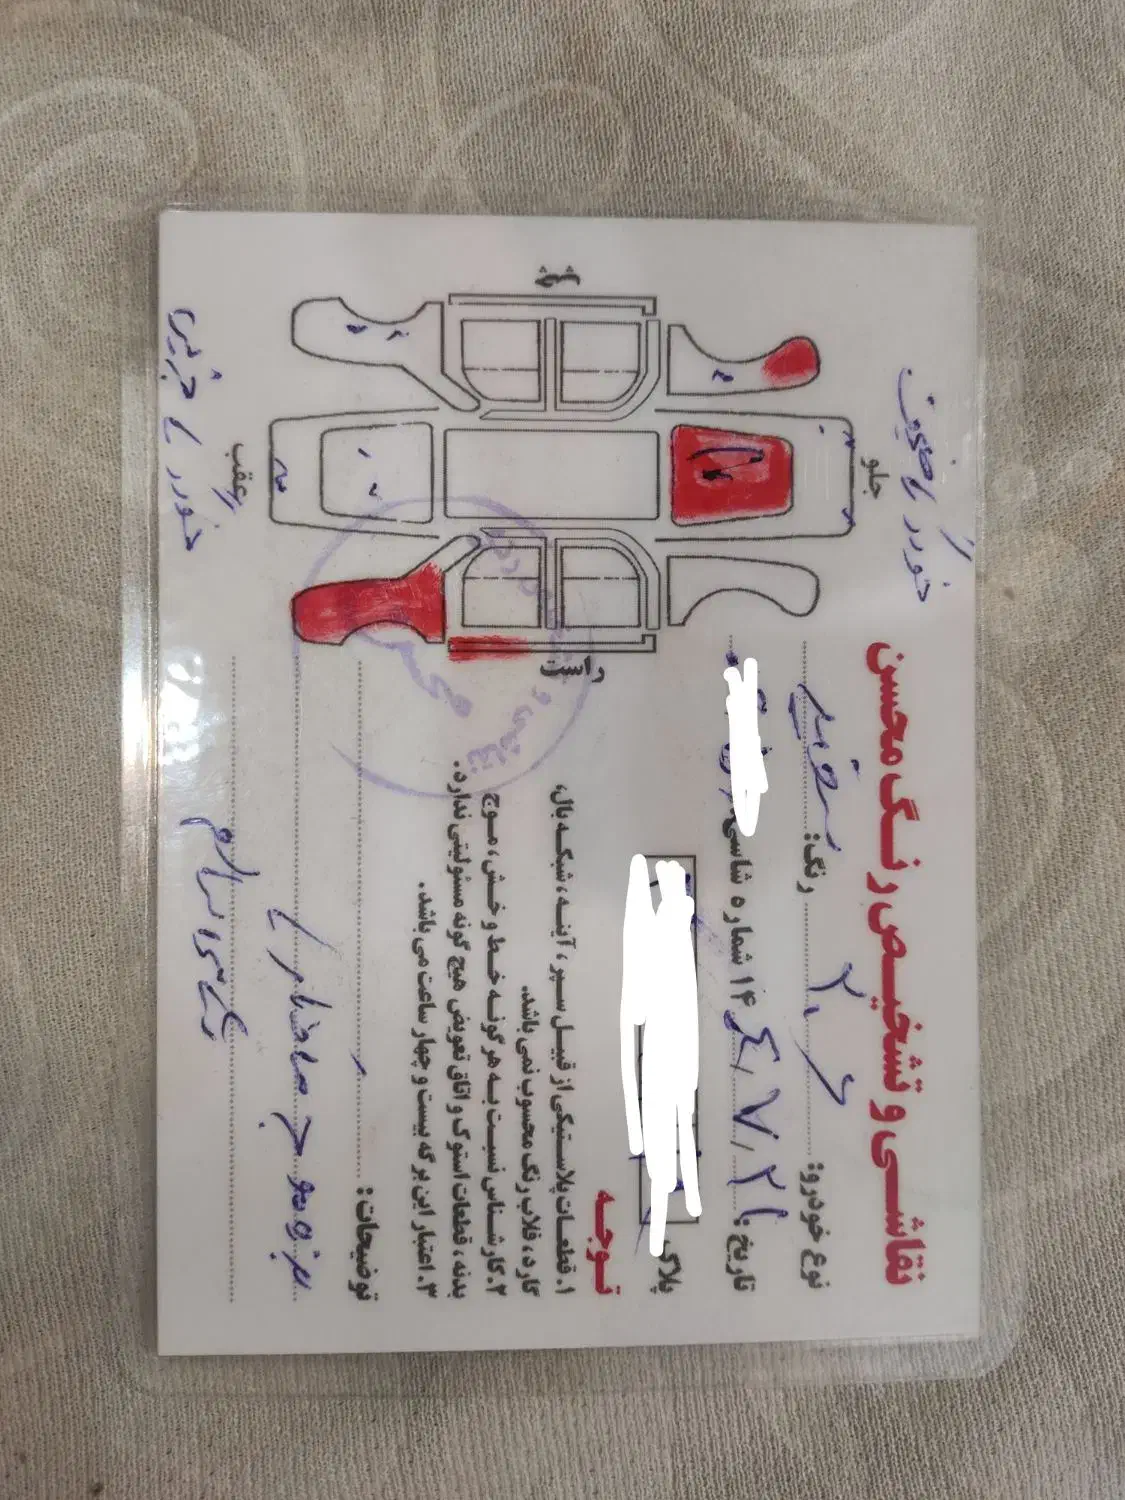 نقاشی و تشخیص رنگ محسن
نوع خودرو: ۲۰۶ رنگ: سفید
تاریخ: ۱۴۰۴/۷/۲۱ شماره شاسی:
پلاک:
توجه
۱. قطعات پلاستیکی از قبیل سپر، آینه، شبکه بال،
گارد، قلاب رنگ محسوب نمی باشد.
۲. کارشناس نسبت به هر گونه خط و خش، موج
بدنه، قطعات استوک و اتاق تعویض هیچ گونه مسئولیتی ندارد.
۳. اعتبار این برگه بیست و چهار ساعت می باشد.
توضیحات:
جلو
عقب
چپ
راست
خوردگی خفیف
خوردگی جزئی